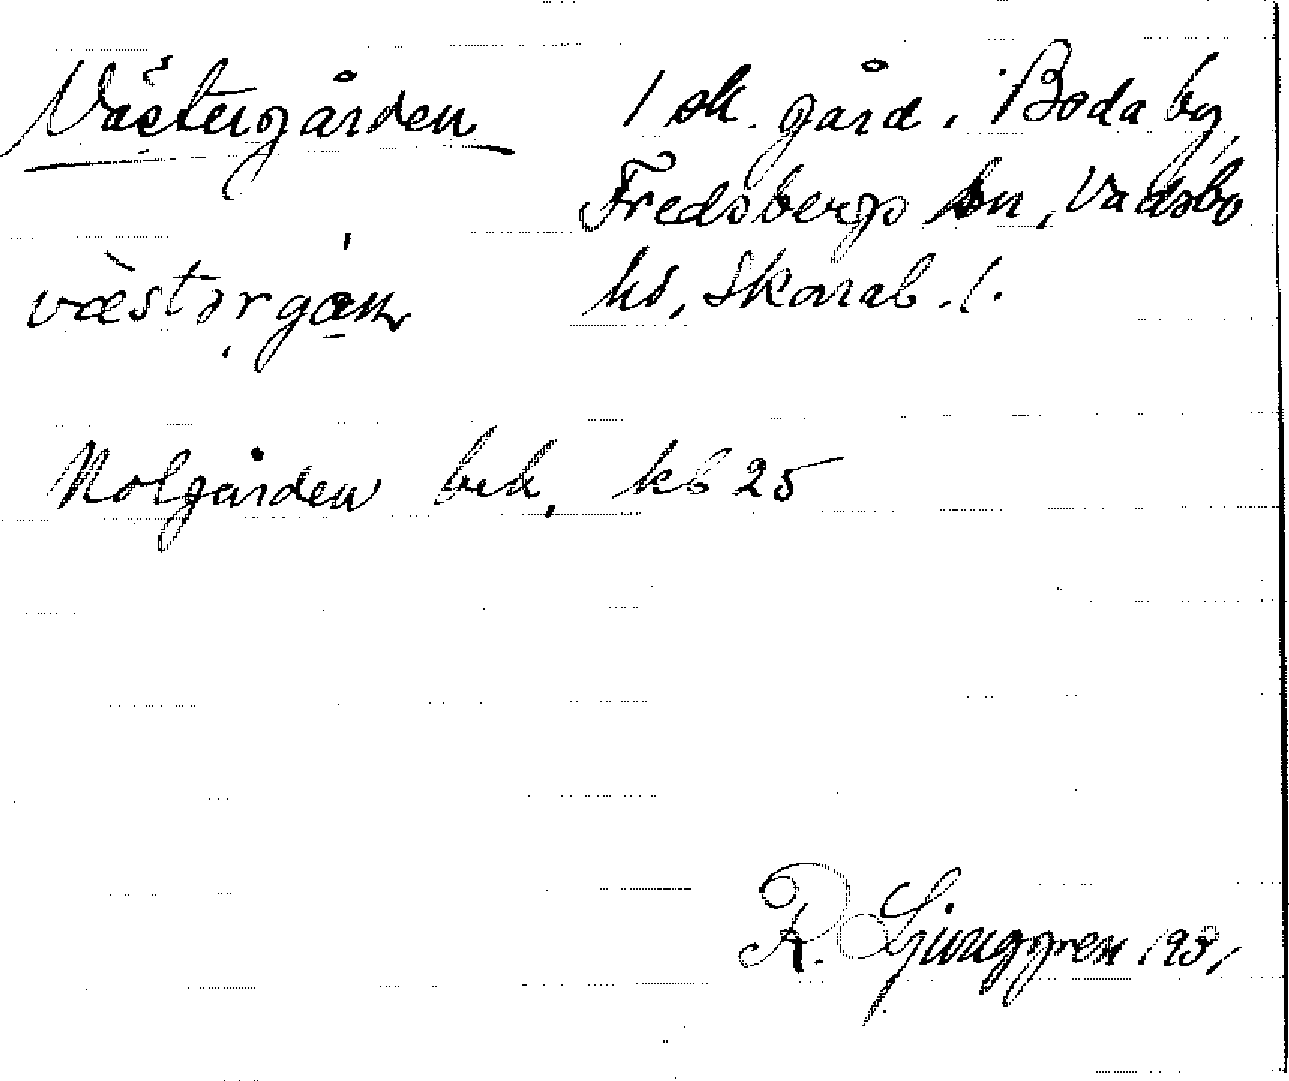 Västergården 1 sk. gård i Boda by,
Fredsbergs sn, Vadsbo
hd, Skarab. l.
Nolgården bed. kb 25
R. Ljunggren 1931